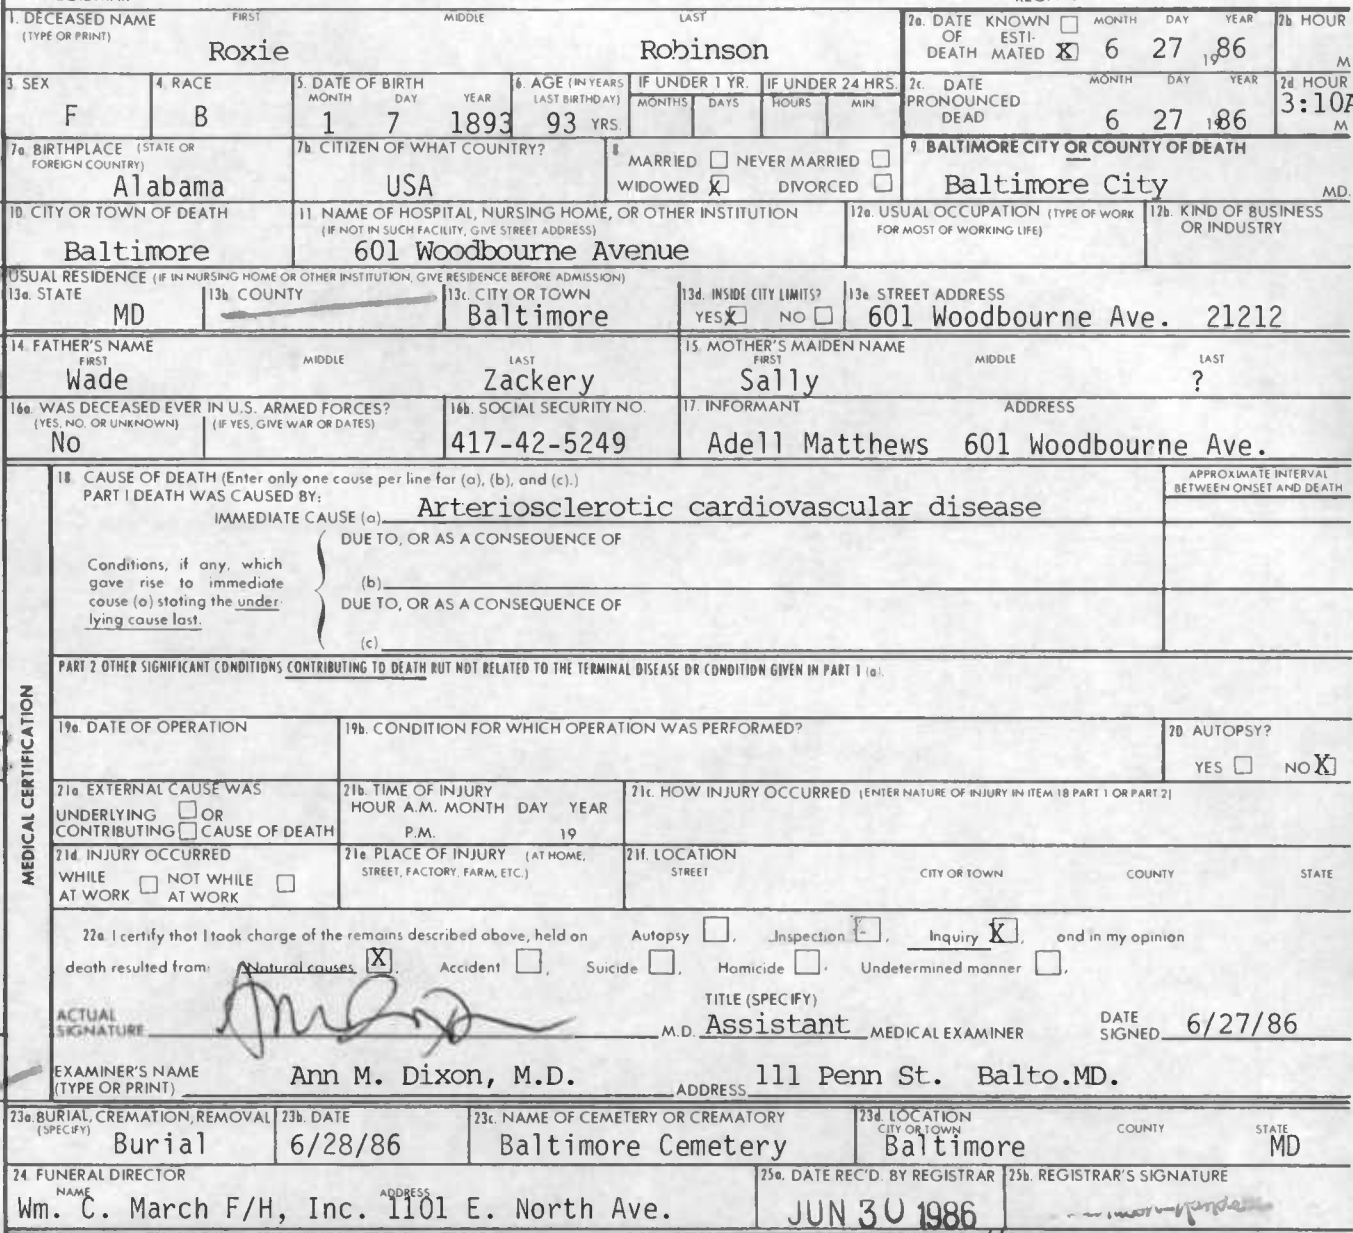 1. DECEASED NAME FIRST MIDDLE LAST
(TYPE OR PRINT)
Roxie Robinson
2a. DATE OF DEATH KNOWN ESTIMATED X MONTH DAY YEAR
6 27 1986
2b HOUR
M
3. SEX
F
4. RACE
B
5. DATE OF BIRTH
MONTH DAY YEAR
1 7 1893
6. AGE (IN YEARS LAST BIRTHDAY)
93 YRS.
IF UNDER 1 YR.
MONTHS DAYS
IF UNDER 24 HRS.
HOURS MIN.
2c. DATE PRONOUNCED DEAD MONTH DAY YEAR
6 27 1986
2d HOUR
3:10A
M
7a. BIRTHPLACE (STATE OR FOREIGN COUNTRY)
Alabama
7b. CITIZEN OF WHAT COUNTRY?
USA
8
MARRIED NEVER MARRIED
WIDOWED X DIVORCED
9. BALTIMORE CITY OR COUNTY OF DEATH
Baltimore City MD.
10. CITY OR TOWN OF DEATH
Baltimore
11. NAME OF HOSPITAL, NURSING HOME, OR OTHER INSTITUTION
(IF NOT IN SUCH FACILITY, GIVE STREET ADDRESS)
601 Woodbourne Avenue
12a. USUAL OCCUPATION (TYPE OF WORK FOR MOST OF WORKING LIFE)
12b. KIND OF BUSINESS OR INDUSTRY
USUAL RESIDENCE (IF IN NURSING HOME OR OTHER INSTITUTION, GIVE RESIDENCE BEFORE ADMISSION)
13a. STATE
MD
13b. COUNTY
13c. CITY OR TOWN
Baltimore
13d. INSIDE CITY LIMITS?
YES X NO
13e. STREET ADDRESS
601 Woodbourne Ave. 21212
14. FATHER'S NAME
FIRST MIDDLE LAST
Wade Zackery
15. MOTHER'S MAIDEN NAME
FIRST MIDDLE LAST
Sally ?
16a. WAS DECEASED EVER IN U.S. ARMED FORCES?
(YES, NO, OR UNKNOWN) (IF YES, GIVE WAR OR DATES)
No
16b. SOCIAL SECURITY NO.
417-42-5249
17. INFORMANT ADDRESS
Adell Matthews 601 Woodbourne Ave.
MEDICAL CERTIFICATION
18. CAUSE OF DEATH (Enter only one cause per line for (a), (b), and (c).)
PART I DEATH WAS CAUSED BY:
IMMEDIATE CAUSE (a) Arteriosclerotic cardiovascular disease
APPROXIMATE INTERVAL
BETWEEN ONSET AND DEATH
DUE TO, OR AS A CONSEQUENCE OF
Conditions, if any, which
gave rise to immediate
cause (a) stating the under-
lying cause last.
(b)
DUE TO, OR AS A CONSEQUENCE OF
(c)
PART 2 OTHER SIGNIFICANT CONDITIONS CONTRIBUTING TO DEATH BUT NOT RELATED TO THE TERMINAL DISEASE OR CONDITION GIVEN IN PART 1 (a).
19a. DATE OF OPERATION
19b. CONDITION FOR WHICH OPERATION WAS PERFORMED?
20. AUTOPSY?
YES NO X
21a. EXTERNAL CAUSE WAS
UNDERLYING OR
CONTRIBUTING CAUSE OF DEATH
21b. TIME OF INJURY
HOUR A.M. MONTH DAY YEAR
P.M. 19
21c. HOW INJURY OCCURRED (ENTER NATURE OF INJURY IN ITEM 18 PART 1 OR PART 2)
21d. INJURY OCCURRED
WHILE AT WORK NOT WHILE AT WORK
21e. PLACE OF INJURY (AT HOME, STREET, FACTORY, FARM, ETC.)
21f. LOCATION
STREET CITY OR TOWN COUNTY STATE
22a. I certify that I took charge of the remains described above, held on Autopsy , Inspection , Inquiry X , and in my opinion
death resulted from: Natural causes X , Accident , Suicide , Homicide , Undetermined manner .
ACTUAL SIGNATURE M.D.
TITLE (SPECIFY)
Assistant MEDICAL EXAMINER
DATE SIGNED 6/27/86
EXAMINER'S NAME (TYPE OR PRINT) Ann M. Dixon, M.D. ADDRESS 111 Penn St. Balto.MD.
23a. BURIAL, CREMATION, REMOVAL (SPECIFY)
Burial
23b. DATE
6/28/86
23c. NAME OF CEMETERY OR CREMATORY
Baltimore Cemetery
23d. LOCATION
CITY OR TOWN COUNTY STATE
Baltimore MD
24. FUNERAL DIRECTOR
NAME ADDRESS
Wm. C. March F/H, Inc. 1101 E. North Ave.
25a. DATE REC'D. BY REGISTRAR
JUN 30 1986
25b. REGISTRAR'S SIGNATURE